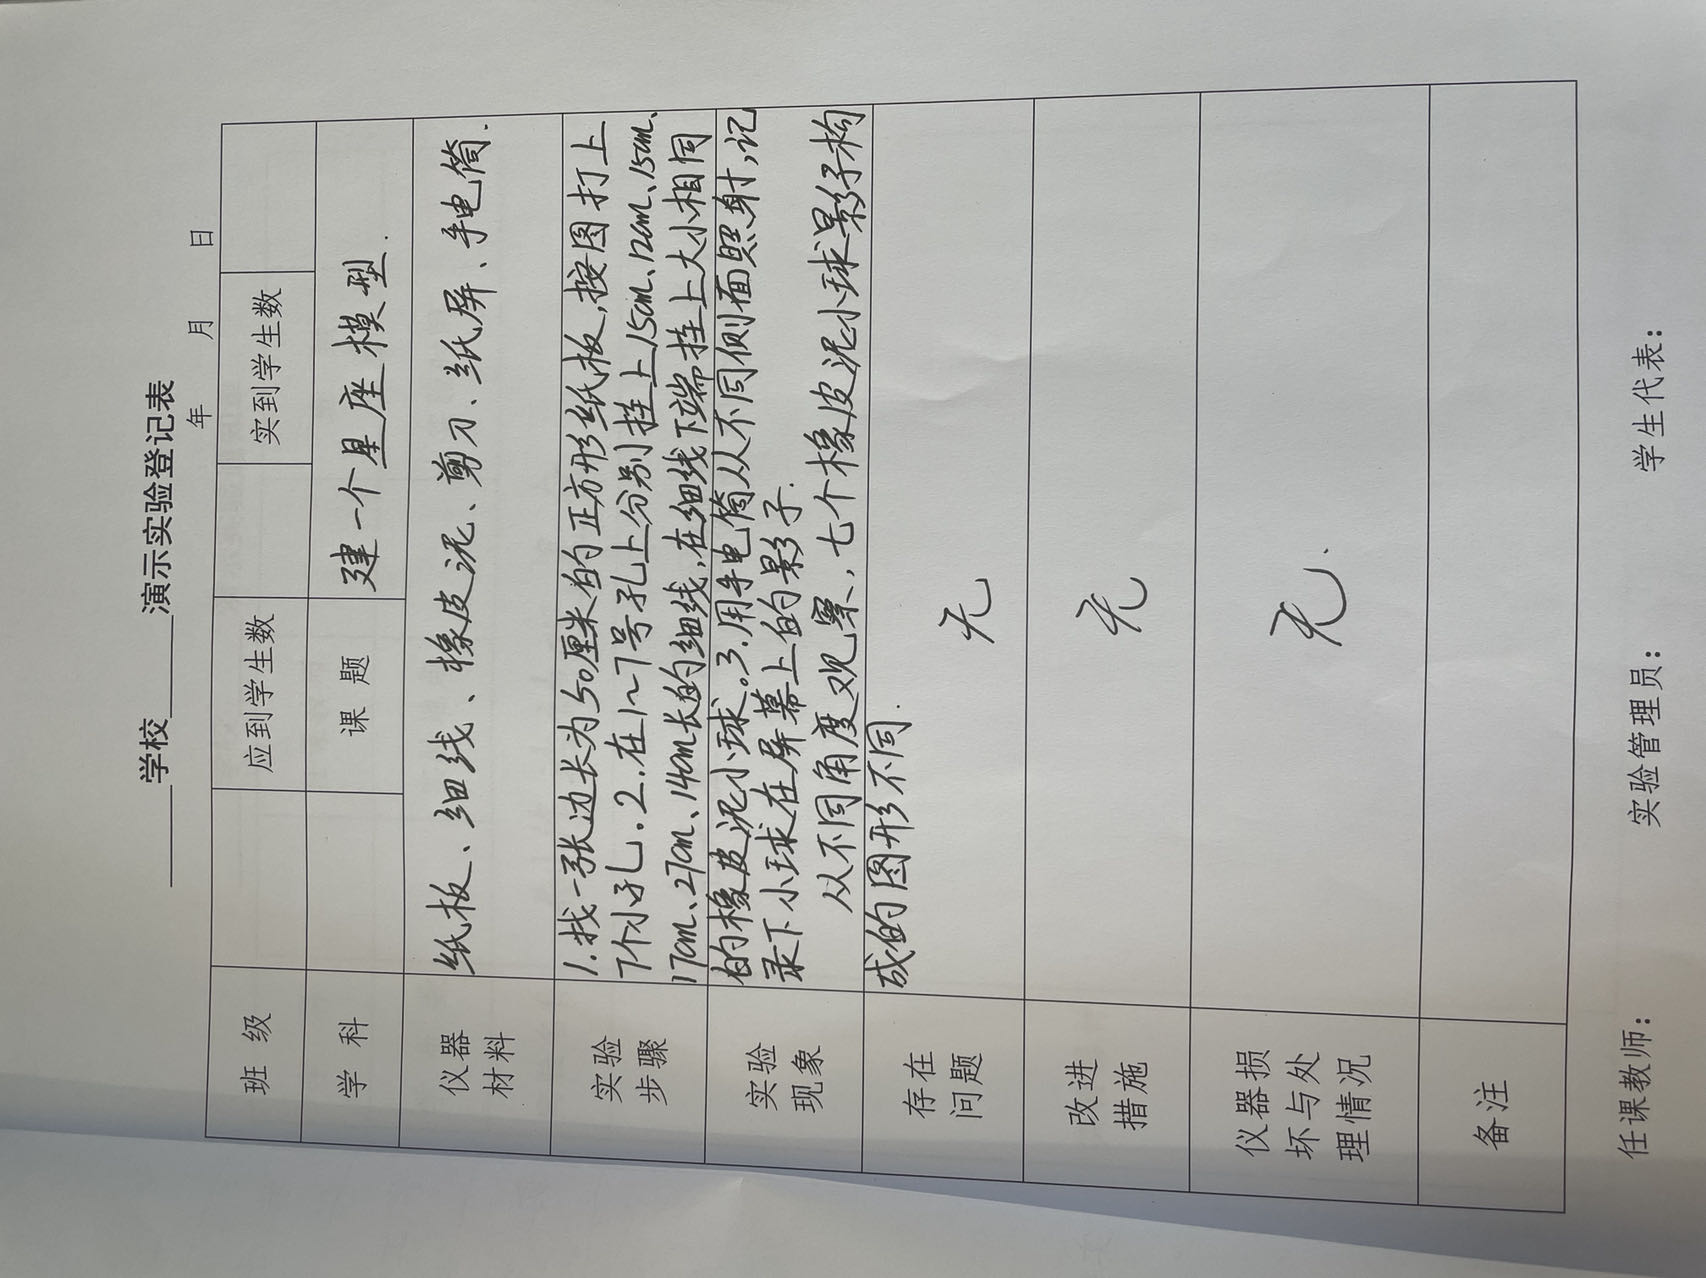 ______学校______演示实验登记表
年 月 日
班 级 应到学生数 实到学生数
学 科 课 题 建一个星座模型.
仪器
材料
纸板、细线、橡皮泥、剪刀、纸屏、手电筒.
实验
步骤
1.找一张边长为50厘米的正方形纸板,按图打上
7个小孔.2.在1~7号孔上分别挂上15cm、12cm、15cm、
17cm、27cm、14cm长的细线,在细线下端挂上大小相同
的橡皮泥小球。3.用手电筒从不同侧面照射,记
录下小球在屏幕上的影子.
实验
现象
从不同角度观察,七个橡皮泥小球影子构
成的图形不同.
存在
问题
无
改进
措施
无
仪器损
坏与处
理情况
无.
备注
任课教师: 实验管理员: 学生代表: